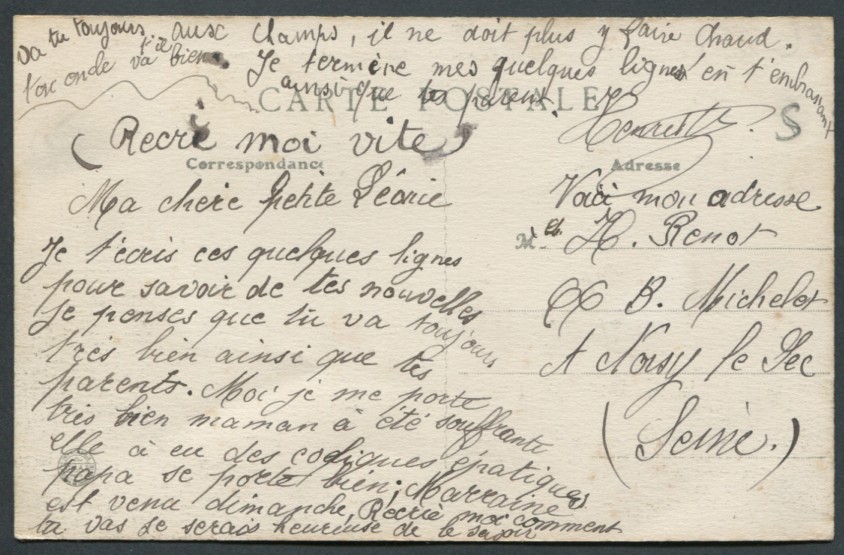 va tu toujours aux champs, il ne doit plus y faire chaud.
ton onde va t'il bien.
Je termine mes quelques lignes en t'embrassant
ainsi que tes parent.
CARTE POSTALE
Henriette.
S
(Recrie moi vite)
Correspondance
Adresse
Ma chere petite Léonie
Je t'écris ces quelques lignes
pour savoir de tes nouvelles
Je penses que tu va toujours
très bien ainsi que tes
parents. Moi je me porte
très bien maman à été souffrante
elle à eu des coliques épatiques
papa se porte bien; Marraine
est venu dimanche, Recrie moi comment
tu vas Je serais heureuse de le savoir
Voici mon adresse
M. elle H. Renot
B. Michelet
A Noisy le Sec
(Seine.)